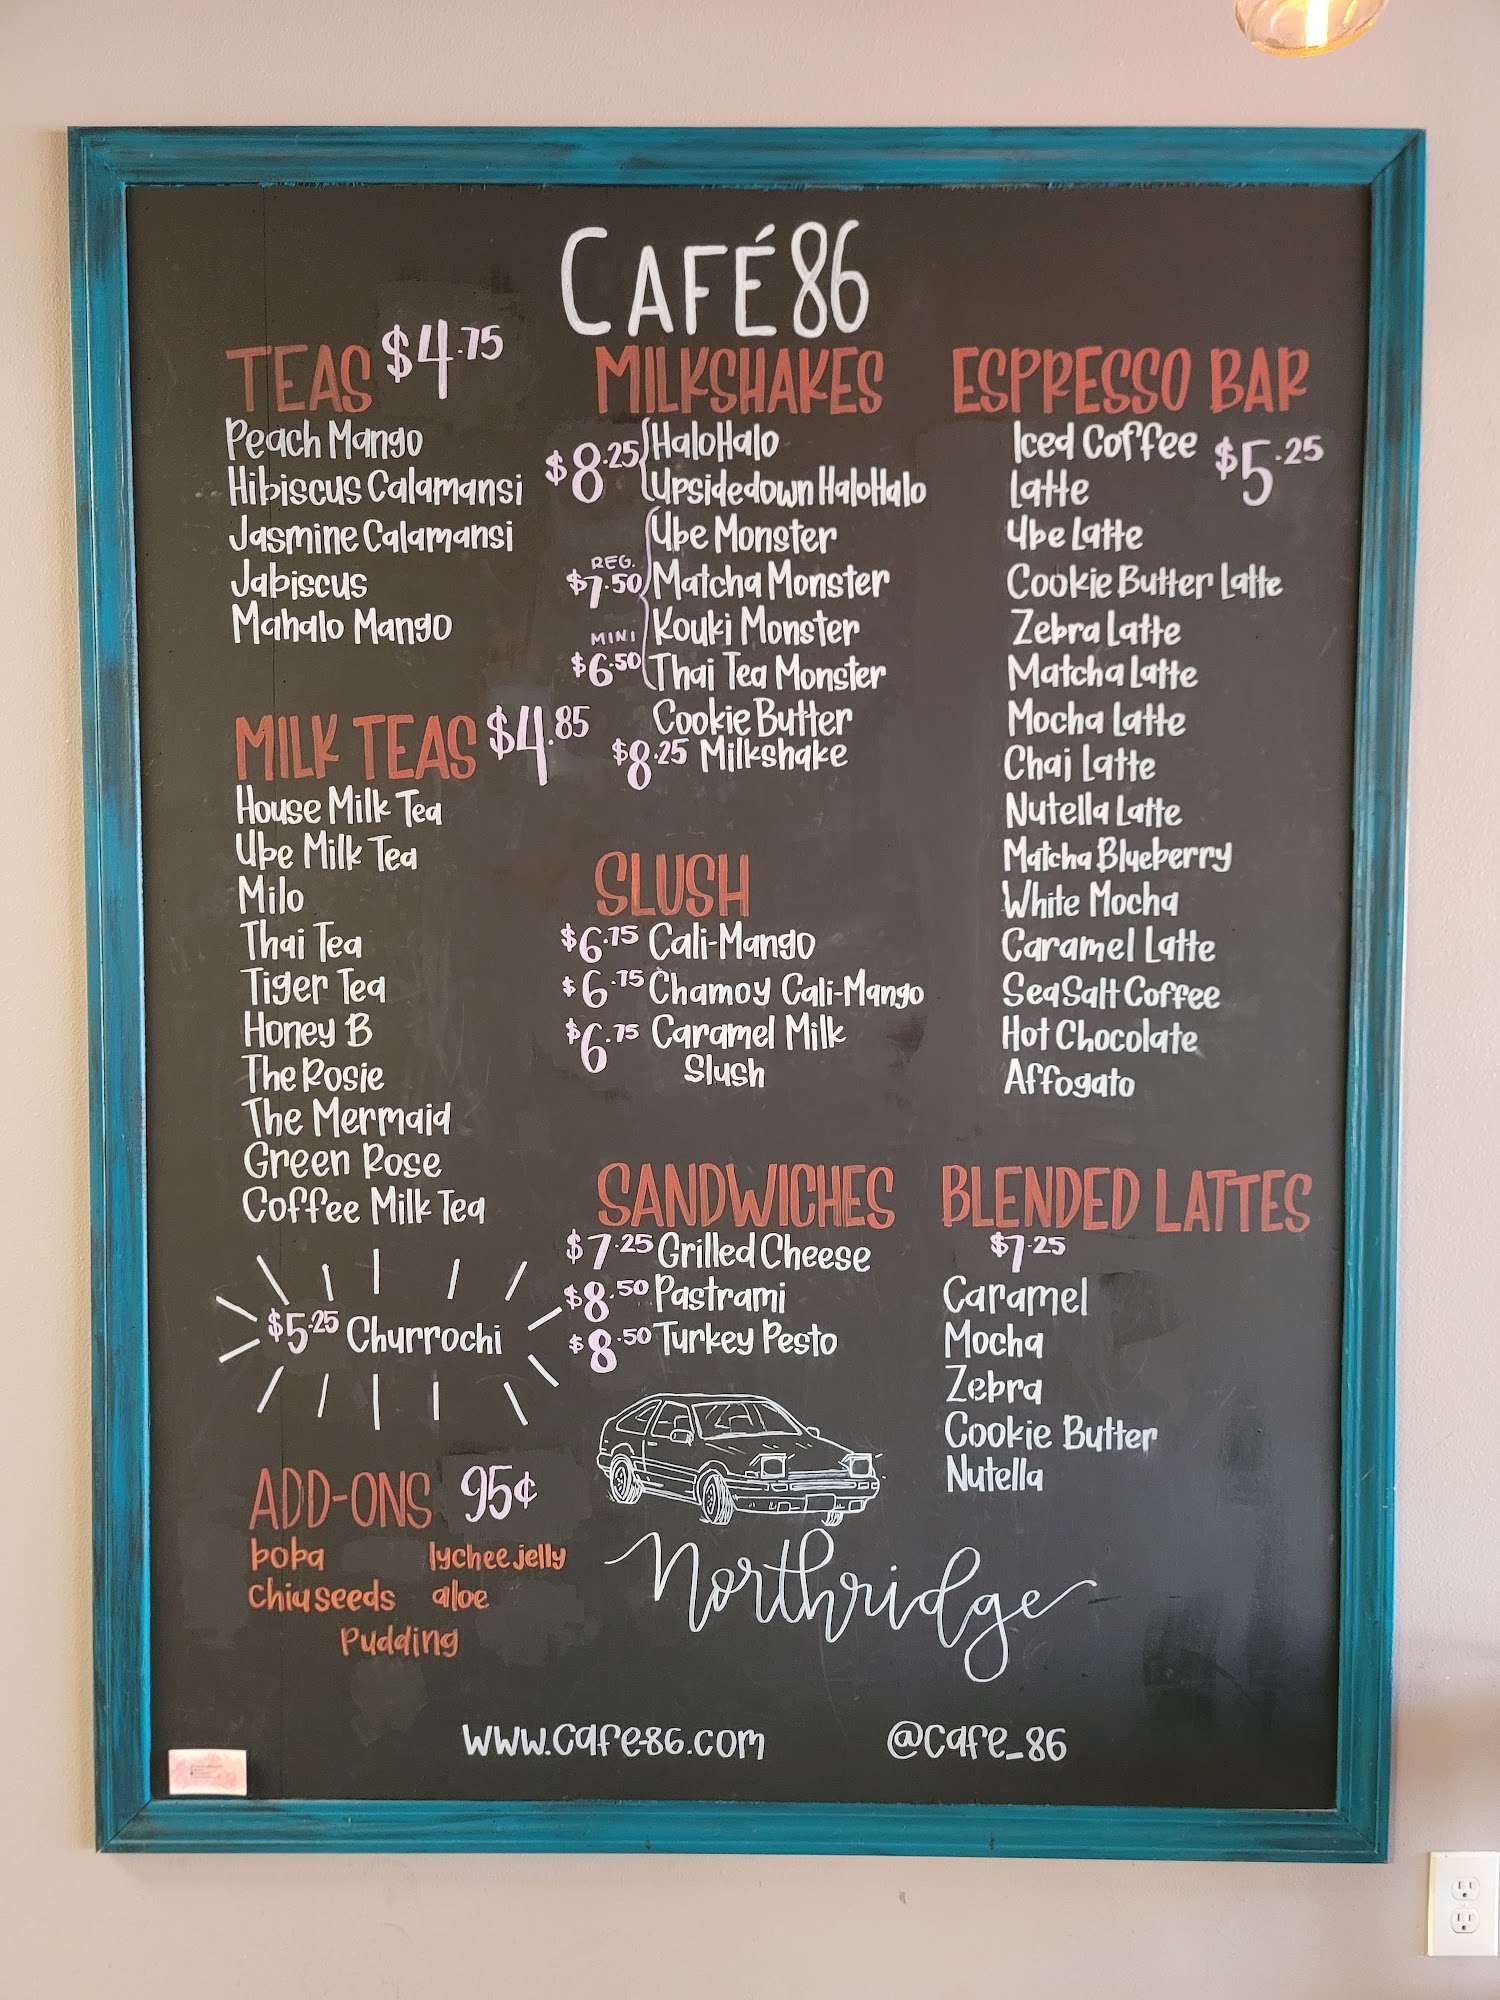 CAFÉ 86
TEAS $4.75
Peach Mango
Hibiscus Calamansi
Jasmine Calamansi
Jabiscus
Mahalo Mango
MILK TEAS $4.85
House Milk Tea
Ube Milk Tea
Milo
Thai Tea
Tiger Tea
Honey B
The Rosie
The Mermaid
Green Rose
Coffee Milk Tea
$5.25 Churrochi
ADD-ONS 95¢
boba lychee jelly
chia seeds aloe
pudding
MILKSHAKES
$8.25 HaloHalo
Upsidedown HaloHalo
Ube Monster
REG.
$7.50 Matcha Monster
MINI Kouki Monster
$6.50 Thai Tea Monster
Cookie Butter
$8.25 Milkshake
SLUSH
$6.75 Cali-Mango
$6.75 Chamoy Cali-Mango
$6.75 Caramel Milk
Slush
SANDWICHES
$7.25 Grilled Cheese
$8.50 Pastrami
$8.50 Turkey Pesto
Northridge
ESPRESSO BAR
Iced Coffee $5.25
Latte
Ube Latte
Cookie Butter Latte
Zebra Latte
Matcha Latte
Mocha Latte
Chai Latte
Nutella Latte
Matcha Blueberry
White Mocha
Caramel Latte
Sea Salt Coffee
Hot Chocolate
Affogato
BLENDED LATTES
$7.25
Caramel
Mocha
Zebra
Cookie Butter
Nutella
www.cafe-86.com @cafe_86